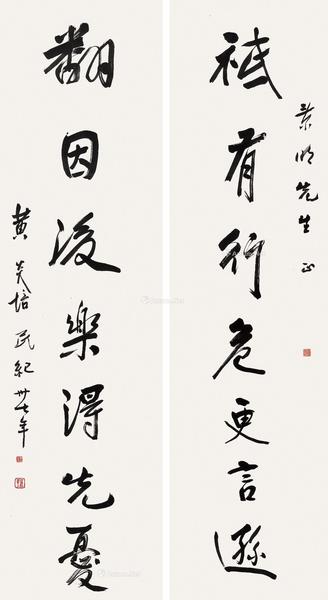 景明先生 正
祇有行危更言遜
翻因後樂得先憂
黄炎培 民紀卅七年